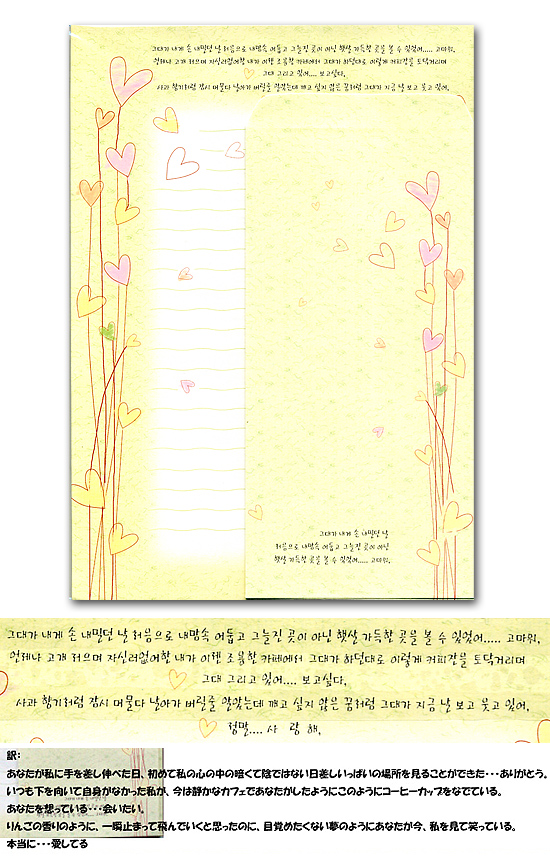 그대가 내게 손 내밀던 날 처음으로 내맘속 어둡고 그늘진 곳이 아닌 햇살 가득한 곳을 볼 수 있었어..... 고마워.
언제나 고개 저으며 자신없어한 내가 이젠 조용한 카페에서 그대가 하던대로 이렇게 커피잔을 토닥거리며
그대 그리고 있어.... 보고싶다.
사과 향기처럼 잠시 머물다 날아가 버릴줄 알았는데 깨고 싶지 않은 꿈처럼 그대가 지금 날 보고 웃고 있어.
그대가 내게 손 내밀던 날
처음으로 내맘속 어둡고 그늘진 곳이 아닌
햇살 가득한 곳을 볼 수 있었어..... 고마워.
그대가 내게 손 내밀던 날 처음으로 내맘속 어둡고 그늘진 곳이 아닌 햇살 가득한 곳을 볼 수 있었어..... 고마워.
언제나 고개 저으며 자신없어한 내가 이젠 조용한 카페에서 그대가 하던대로 이렇게 커피잔을 토닥거리며
그대 그리고 있어.... 보고싶다.
사과 향기처럼 잠시 머물다 날아가 버릴줄 알았는데 깨고 싶지 않은 꿈처럼 그대가 지금 날 보고 웃고 있어.
정말.... 사 랑 해.
訳:
あなたが私に手を差し伸べた日、初めて私の心の中の暗くて陰ではない日差しいっぱいの場所を見ることができた・・・ありがとう。
いつも下を向いて自身がなかった私が、今は静かなカフェであなたがしたようにこのようにコーヒーカップをなでている。
あなたを想っている・・・会いたい。
りんごの香りのように、一瞬止まって飛んでいくと思ったのに、目覚めたくない夢のようにあなたが今、私を見て笑っている。
本当に・・・愛してる